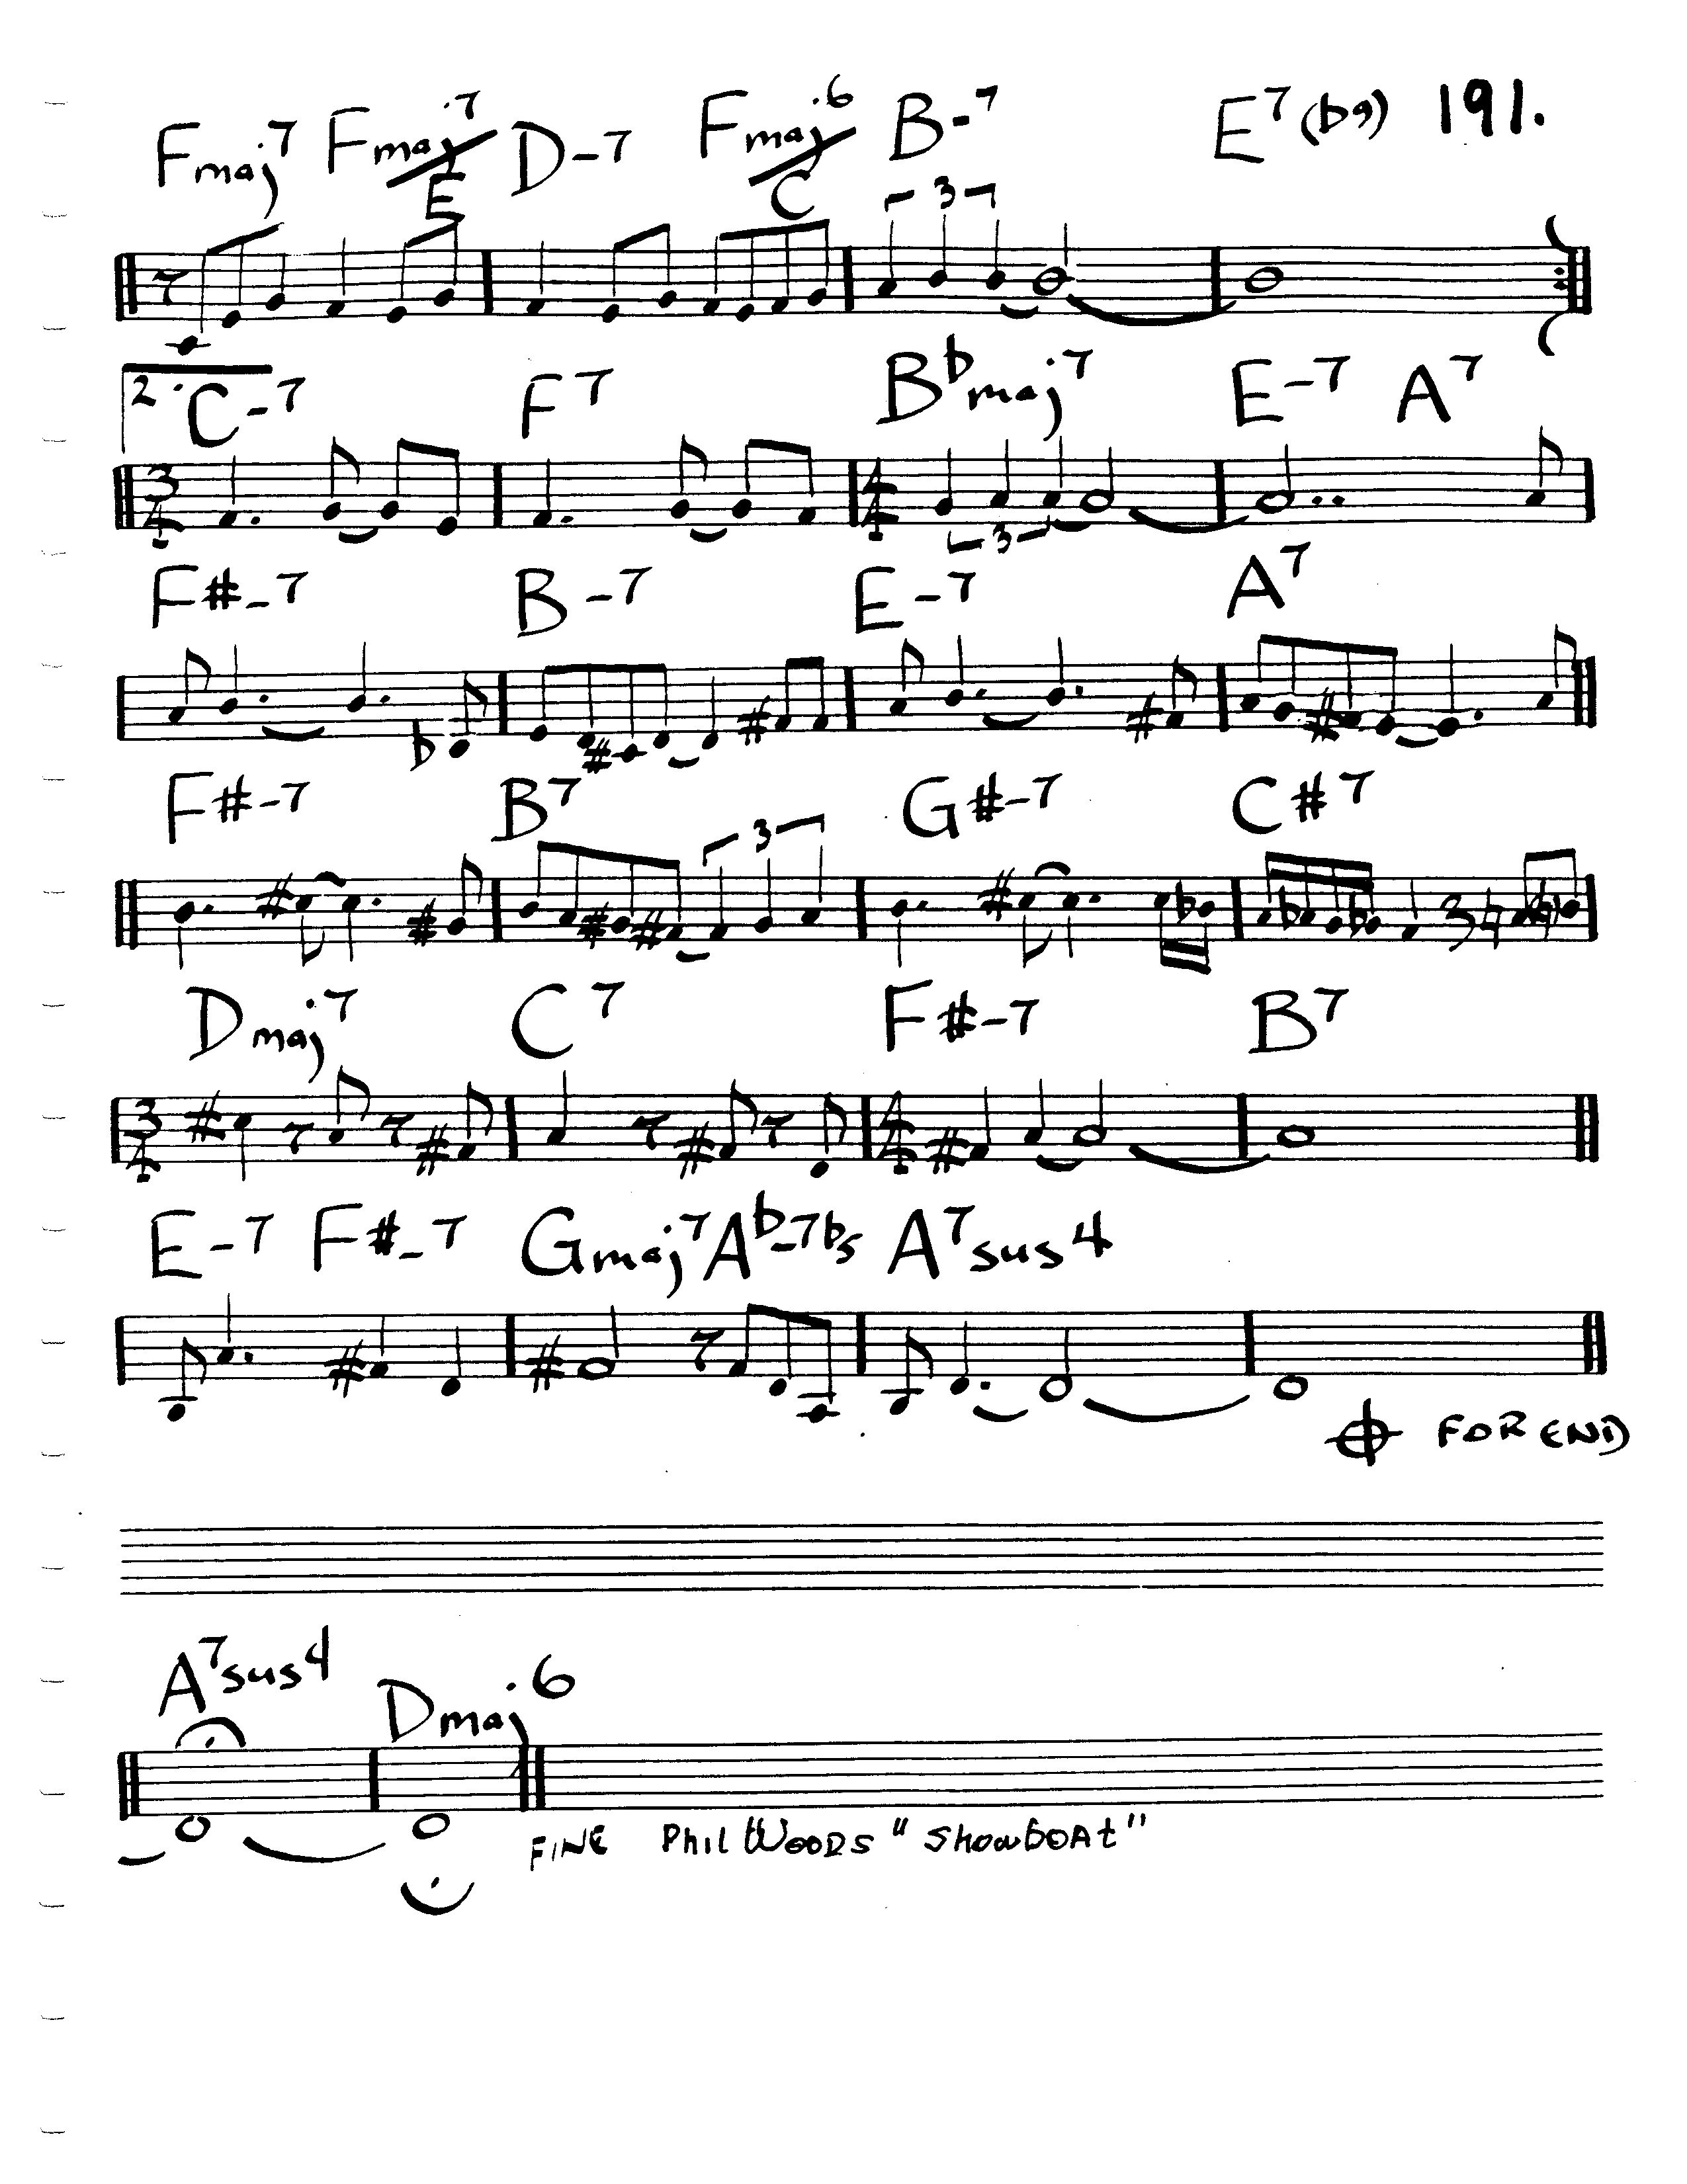 Fmaj7 Fmaj7/E D-7 Fmaj6/C B-7 E7(b9) 191.
3
2. C-7 F7 Bbmaj7 E-7 A7
3/4 4/4
3
F#-7 B-7 E-7 A7
F#-7 B7 G#-7 C#7
3
Dmaj7 C7 F#-7 B7
3/4 4/4
E-7 F#-7 Gmaj7 Ab-7b5 A7sus4
FOR END
A7sus4 Dmaj6
FINE Phil Woods "Showboat"